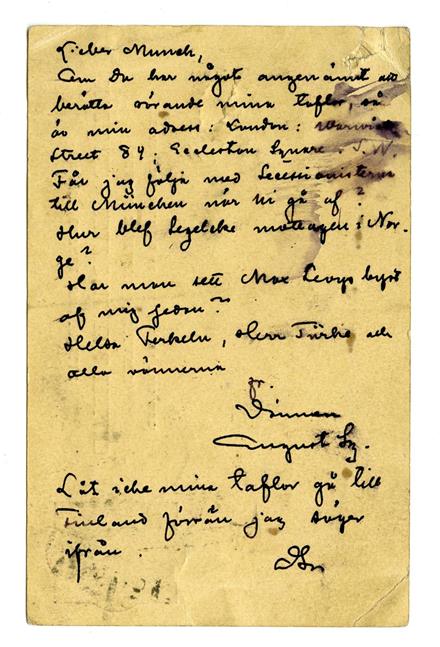 Lieber Munch,
Om Du har något angenämt att
berätta rörande mina taflor, så
är min adress: London: Warwick
Street 84; Eccleston Square. S.W.
Får jag följa med Secessionisterna
till München när ni gå af?
Hur blef Legelcke mottagen i Nor-
ge?
Har man sett Max Levys byst
af mig sedan?
Helsa Ferkeln, Herr Türke och
alla vännerna
fr.
Vännen
August Sg.
Låt icke mina taflor gå till
Finland förrän jag säger
ifrån.